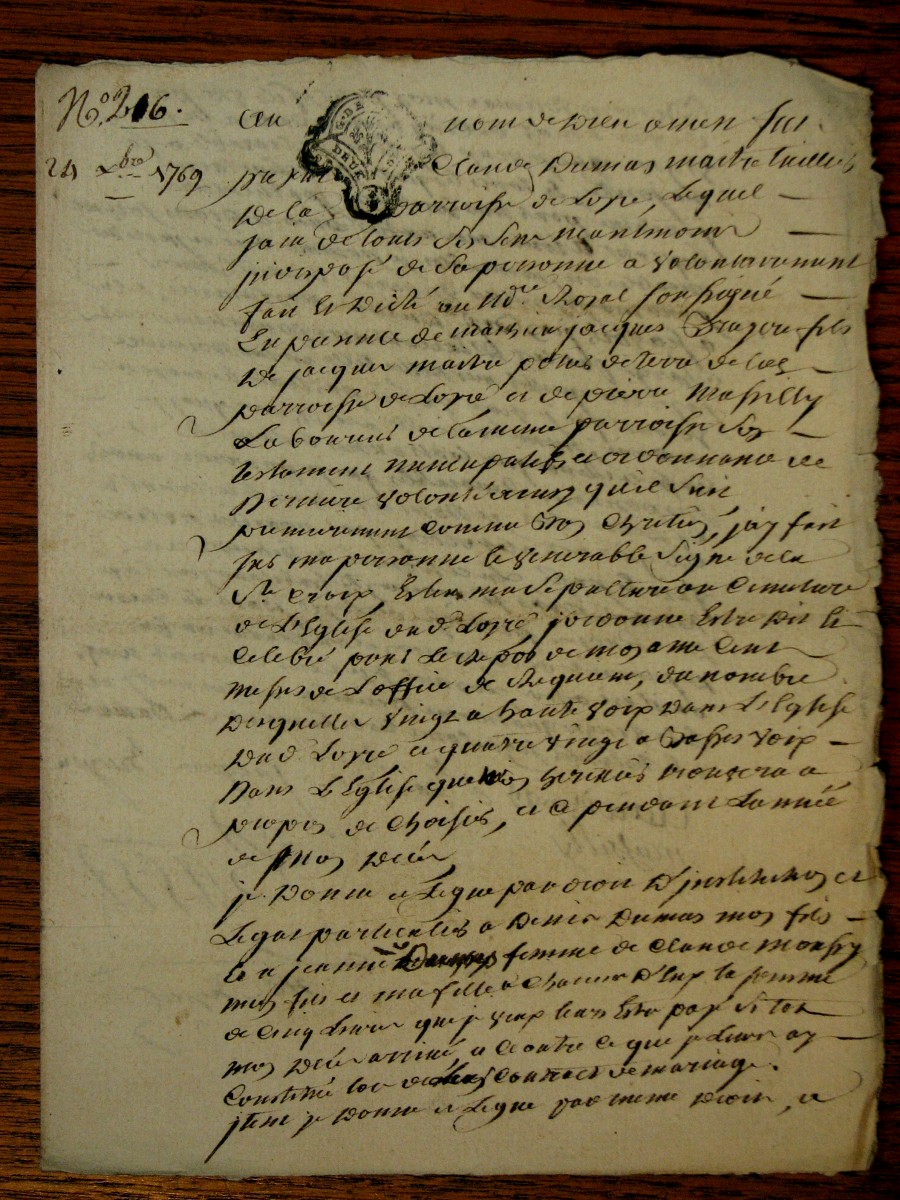 No. 216.
24 xbre 1769
au nom de Dieu amen fut
present Claude Dumas maitre tuillier
de la parroisse de Loyre, Lequel
sain de touts ses sens
indisposé de sa personne a volontairement
fait et dicté au Nore Royal soussigné
En presence de jacques fils
de jacques maitre potier de terre de la
parroisse de Loyre et de pierre
Laboureur de la meme parroisse son
testament nuncupatif et ordonnance de
Derniere volonté ainsy qu'il suit
premierement comme bon Chretien, j'ay fait
sur ma personne le venerable signe de la
Ste croix, Eslis ma sepulture au Cimetiere
de L'Eglise dud. Loyre j'ordonne Estre dit et
Celebré pour le repos de mon ame Cent
messes de L'office de Requiem, du nombre
Desquelles vingt a haute voix dans L'Eglise
dud. Loyre et quatre vingt a basses voix
Dans L'Eglise que mon heritier trouvera a
propos de choisir, et ce pendant L'année
de mon Decés
je Donne et Legue par droit D'institution et
Legat particulier a Denis Dumas mon fils
et a jeanne Dumas femme de Claude
mes fils et ma fille a chacun D'Eux la somme
de Cinq Livres que je veux leurs Estre payé si tot
mon Decés arrivé, et outre ce que je Leurs ay
Constitué lors de leurs Contract de mariage.
jtem je Donne et Legue par meme Droit, a